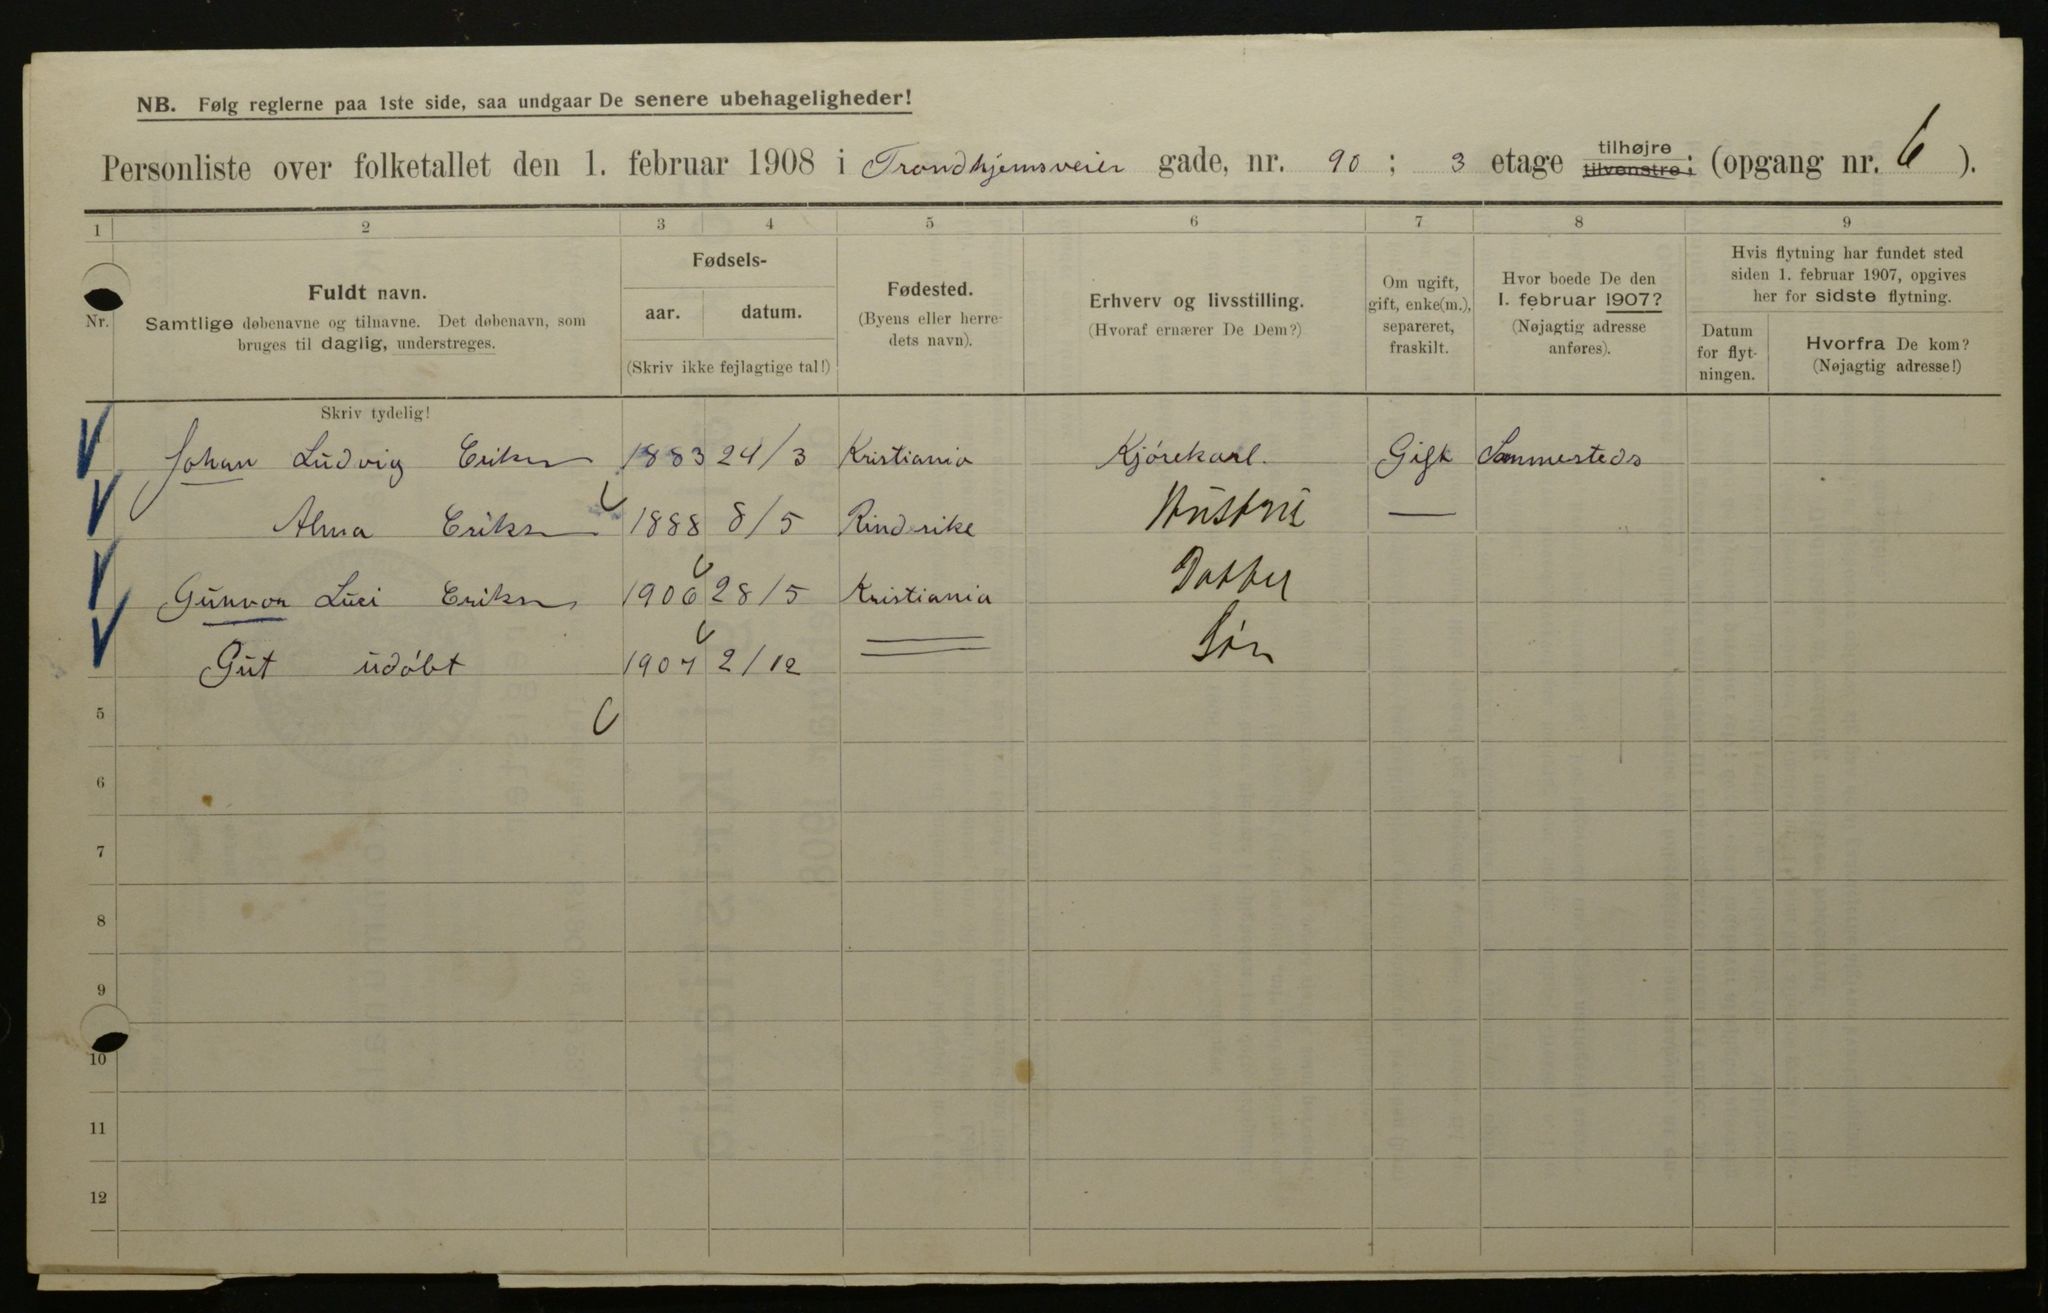 NB. Følg reglerne paa 1ste side, saa undgaar De senere ubehageligheder!
Personliste over folketallet den 1. februar 1908 i Trondhjemsveien gade, nr. 90 ; 3 etage tilhøjre tilvenstre ; (opgang nr. 6 ).
1 2 3 4 5 6 7 8 9
Nr.
Fuldt navn.
Samtlige døbenavne og tilnavne. Det døbenavn, som
bruges til daglig, understreges.
Fødsels-
aar. datum.
(Skriv ikke fejlagtige tal!)
Fødested.
(Byens eller herre-
dets navn).
Erhverv og livsstilling.
(Hvoraf ernærer De Dem?)
Om ugift,
gift, enke(m.),
separeret,
fraskilt.
Hvor boede De den
1. februar 1907?
(Nøjagtig adresse
anføres).
Hvis flytning har fundet sted
siden 1. februar 1907, opgives
her for sidste flytning.
Datum
for flyt-
ningen.
Hvorfra De kom?
(Nøjagtig adresse!)
Skriv tydelig!
Johan Ludvig Eriksn 1883 24/3 Kristiania Kjørekarl. Gift Sammesteds
Alma Eriksn 1888 8/5 Rinderike Hustru —
Gunvor Luci Eriksn 1906 28/5 Kristiania Datter
Gut udøbt 1907 2/12 Søn
5
6
7
8
9
10
11
12